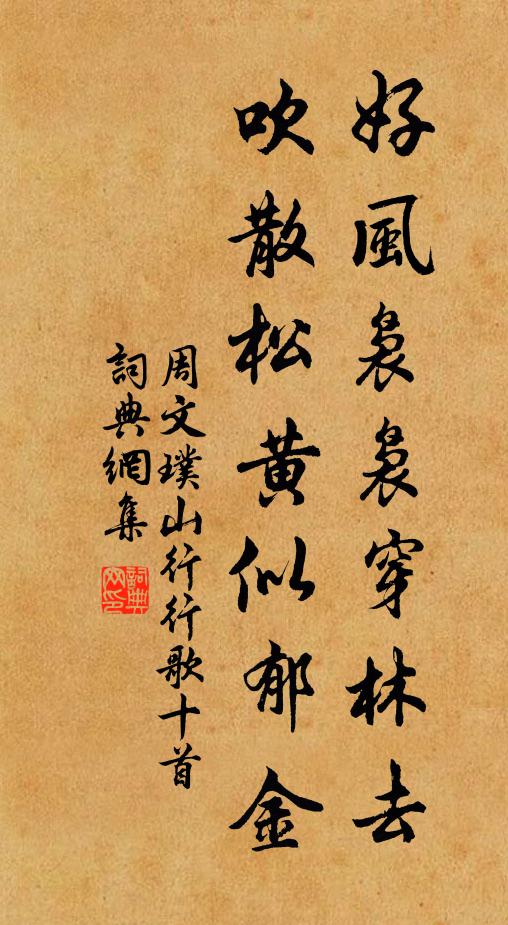 好風裊裊穿林去
吹散松黄似郁金
周文璞山行行歌十首
詞典網集
詞典网印